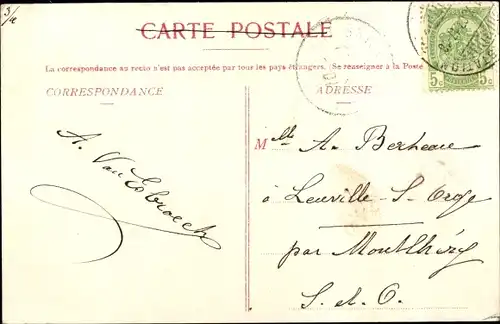 3/a
CARTE POSTALE
La correspondance au recto n'est pas acceptée par tous les pays étrangers. (Se renseigner à la Poste)
CORRESPONDANCE
ADRESSE
5c 5c
A. Van Esbroeck
Mlle A. Bertheau
à Leuville-S-Orge
par Montlhéry
S. et O.